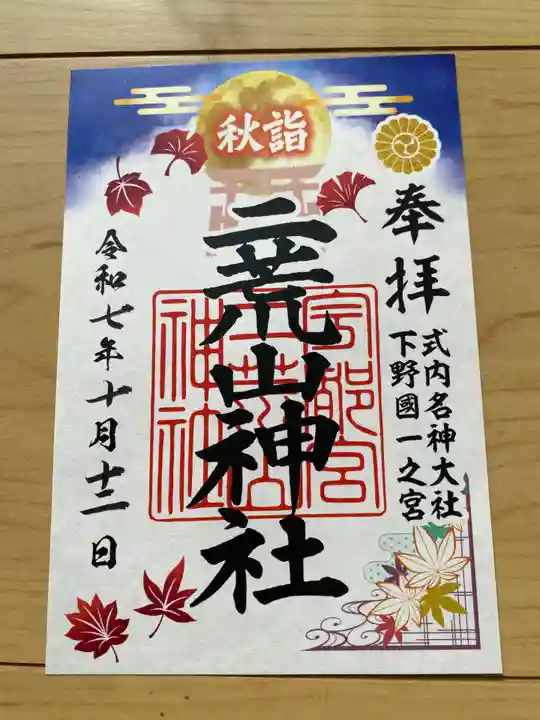 秋詣
奉拝
式内名神大社
下野國一之宮
二荒山神社
宇都宮
二荒山
神社
令和七年十月十二日